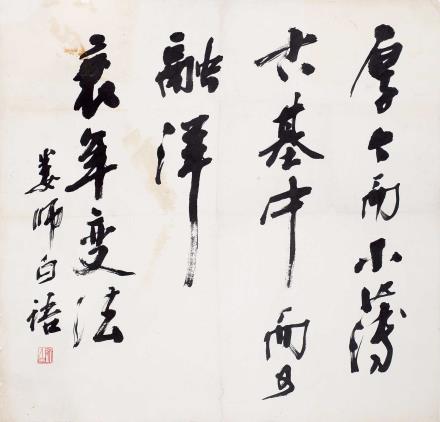 厚今而不薄
古基中而
融洋
衰年变法
娄师白语